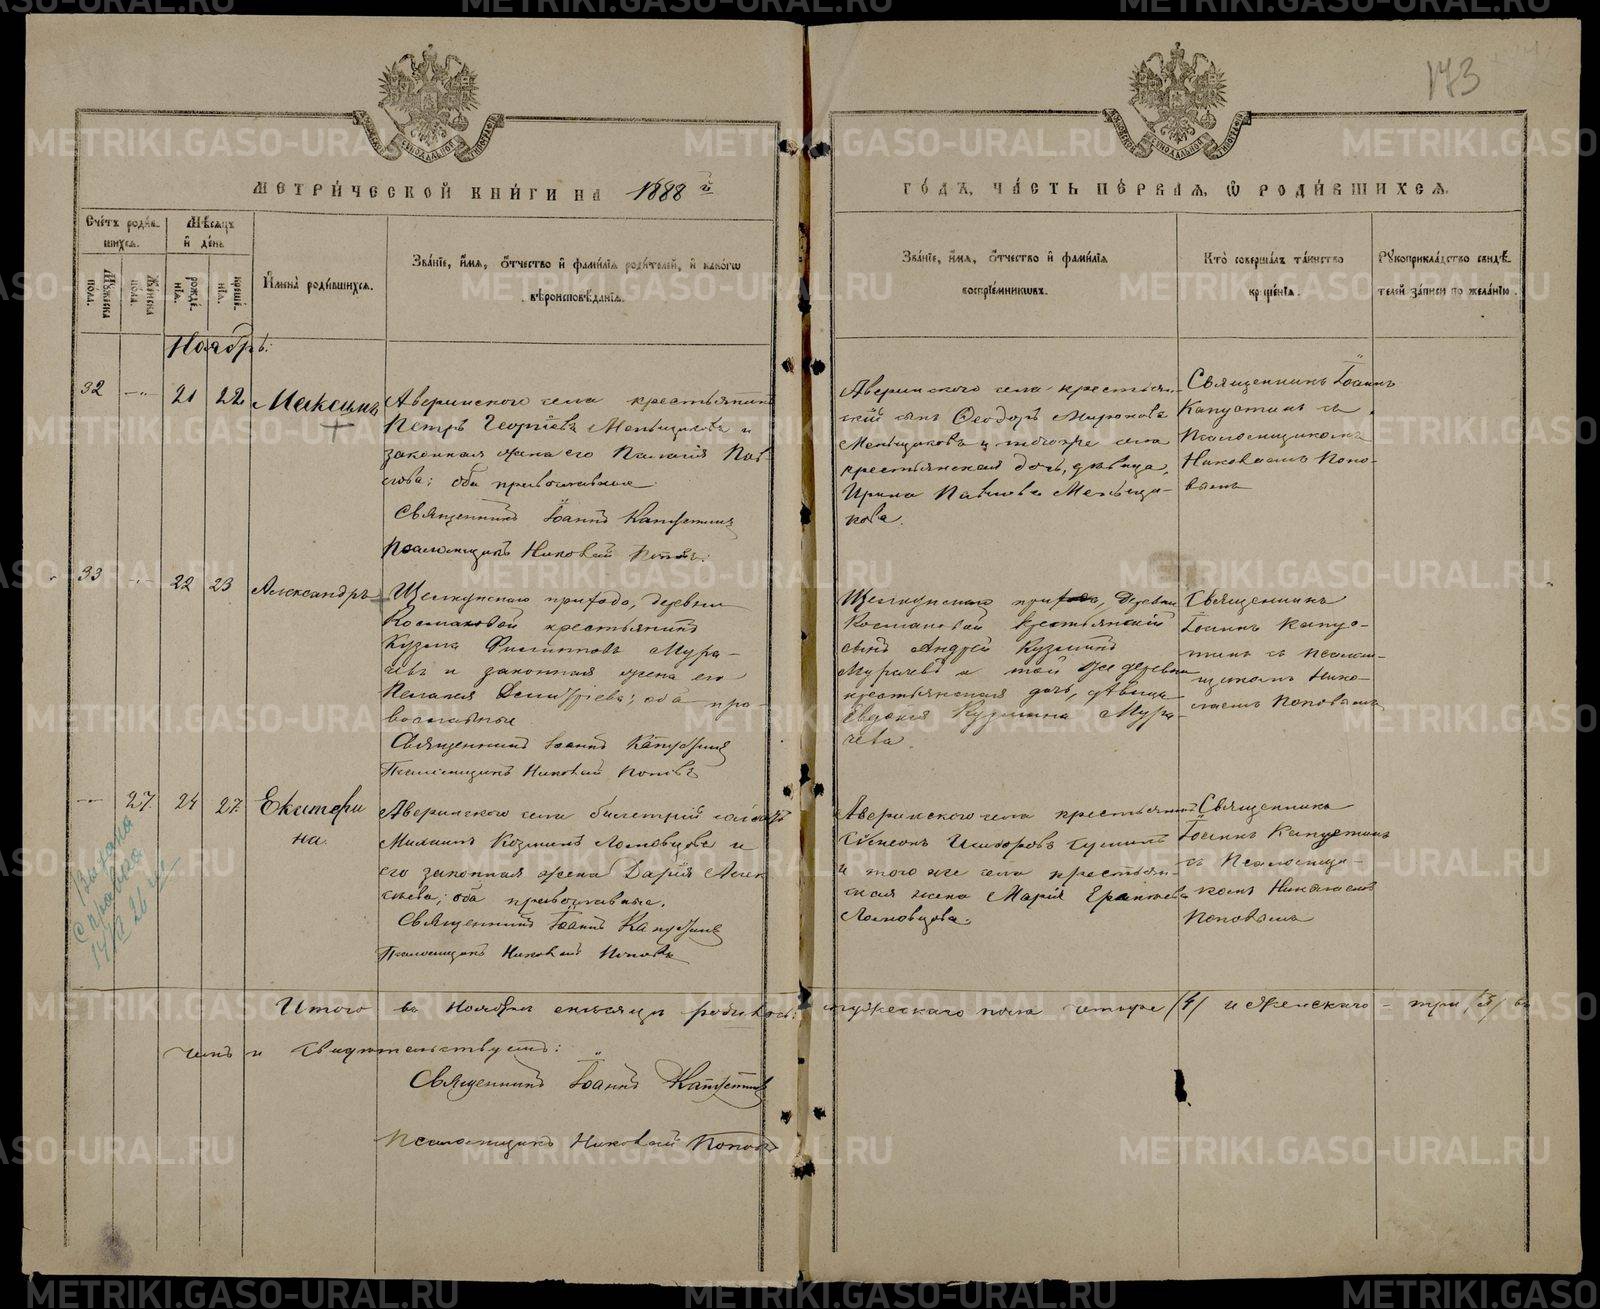 173
МЕТРИЧЕСКОЙ КНИГИ НА 1888 й
ГОДЪ, ЧАСТЬ ПЕРВАЯ, Ѡ РОДИВШИХСЯ.
Счетъ родив-
шихся.
Мужеска
пола.
Женска
пола.
Мѣсяцъ
и день
рожде-
нія.
креще-
нія.
Имена родившихся.
Званіе, имя, отчество и фамилія родителей, и какогѡ
вѣроисповѣданія.
Званіе, имя, отчество и фамилія
воспріемниковъ.
Кто совершалъ таинство
крещенія.
Рукоприкладство свидѣ-
телей записи по желанію.
Ноябрь:
32 -"- 21 22 Максимъ
Аверинского села крестьянинъ
Петръ Георгіевъ Меньщиковъ и
законная жена его Палагія Пав-
лова; оба православные
Священникъ Іоаннъ Капустинъ
Псаломщикъ Николай Поповъ.
Аверинского села крестьян-
скій сынъ Ѳеодоръ Мироновъ
Меньщиковъ и того же села
крестьянская дочь, дѣвица,
Ирина Павлова Меньщи-
кова.
Священникъ Іоаннъ
Капустинъ съ
Псаломщикомъ
Николаемъ Попо-
вымъ
33 -"- 22 23 Александръ
Щелкунскаго прихода, деревни
Космаковой крестьянинъ
Кузма Филипповъ Мура-
чевъ и законная жена его
Пелагія Димитріева; оба пра-
вославные
Священникъ Іоаннъ Капустинъ
Псаломщикъ Николай Поповъ
Щелкунскаго прихода, деревни
Космаковой крестьянскій
сынъ Андрей Кузминъ
Мурачевъ и той же деревни
крестьянская дочь, дѣвица
Евдокія Кузмина Мура-
чева.
Священникъ
Іоаннъ Капус-
тинъ съ Псалом-
щикомъ Нико-
лаемъ Поповымъ
27 24 27 Екатери
на.
Аверинского села билетный солдатъ
Михаилъ Козминъ Ломовцовъ и
его законная жена Дарія Алек-
сѣева; оба православные.
Священникъ Іоаннъ Капустинъ
Псаломщикъ Николай Поповъ
Аверинского села крестьянинъ
Сѵмеонъ Исидоровъ
и того же села крестьян-
ская жена Марія
Ломовцова.
Священникъ
Іоаннъ Капустинъ
съ Псаломщи-
комъ Николаемъ
Поповымъ
Выдана
справка
Итого въ Ноябрѣ мѣсяцѣ родилось: мужескаго пола четыре /4/ и женскаго - три /3/ въ
чемъ и свидѣтельствуемъ:
Священникъ Іоаннъ Капустинъ
Псаломщикъ Николай Поповъ